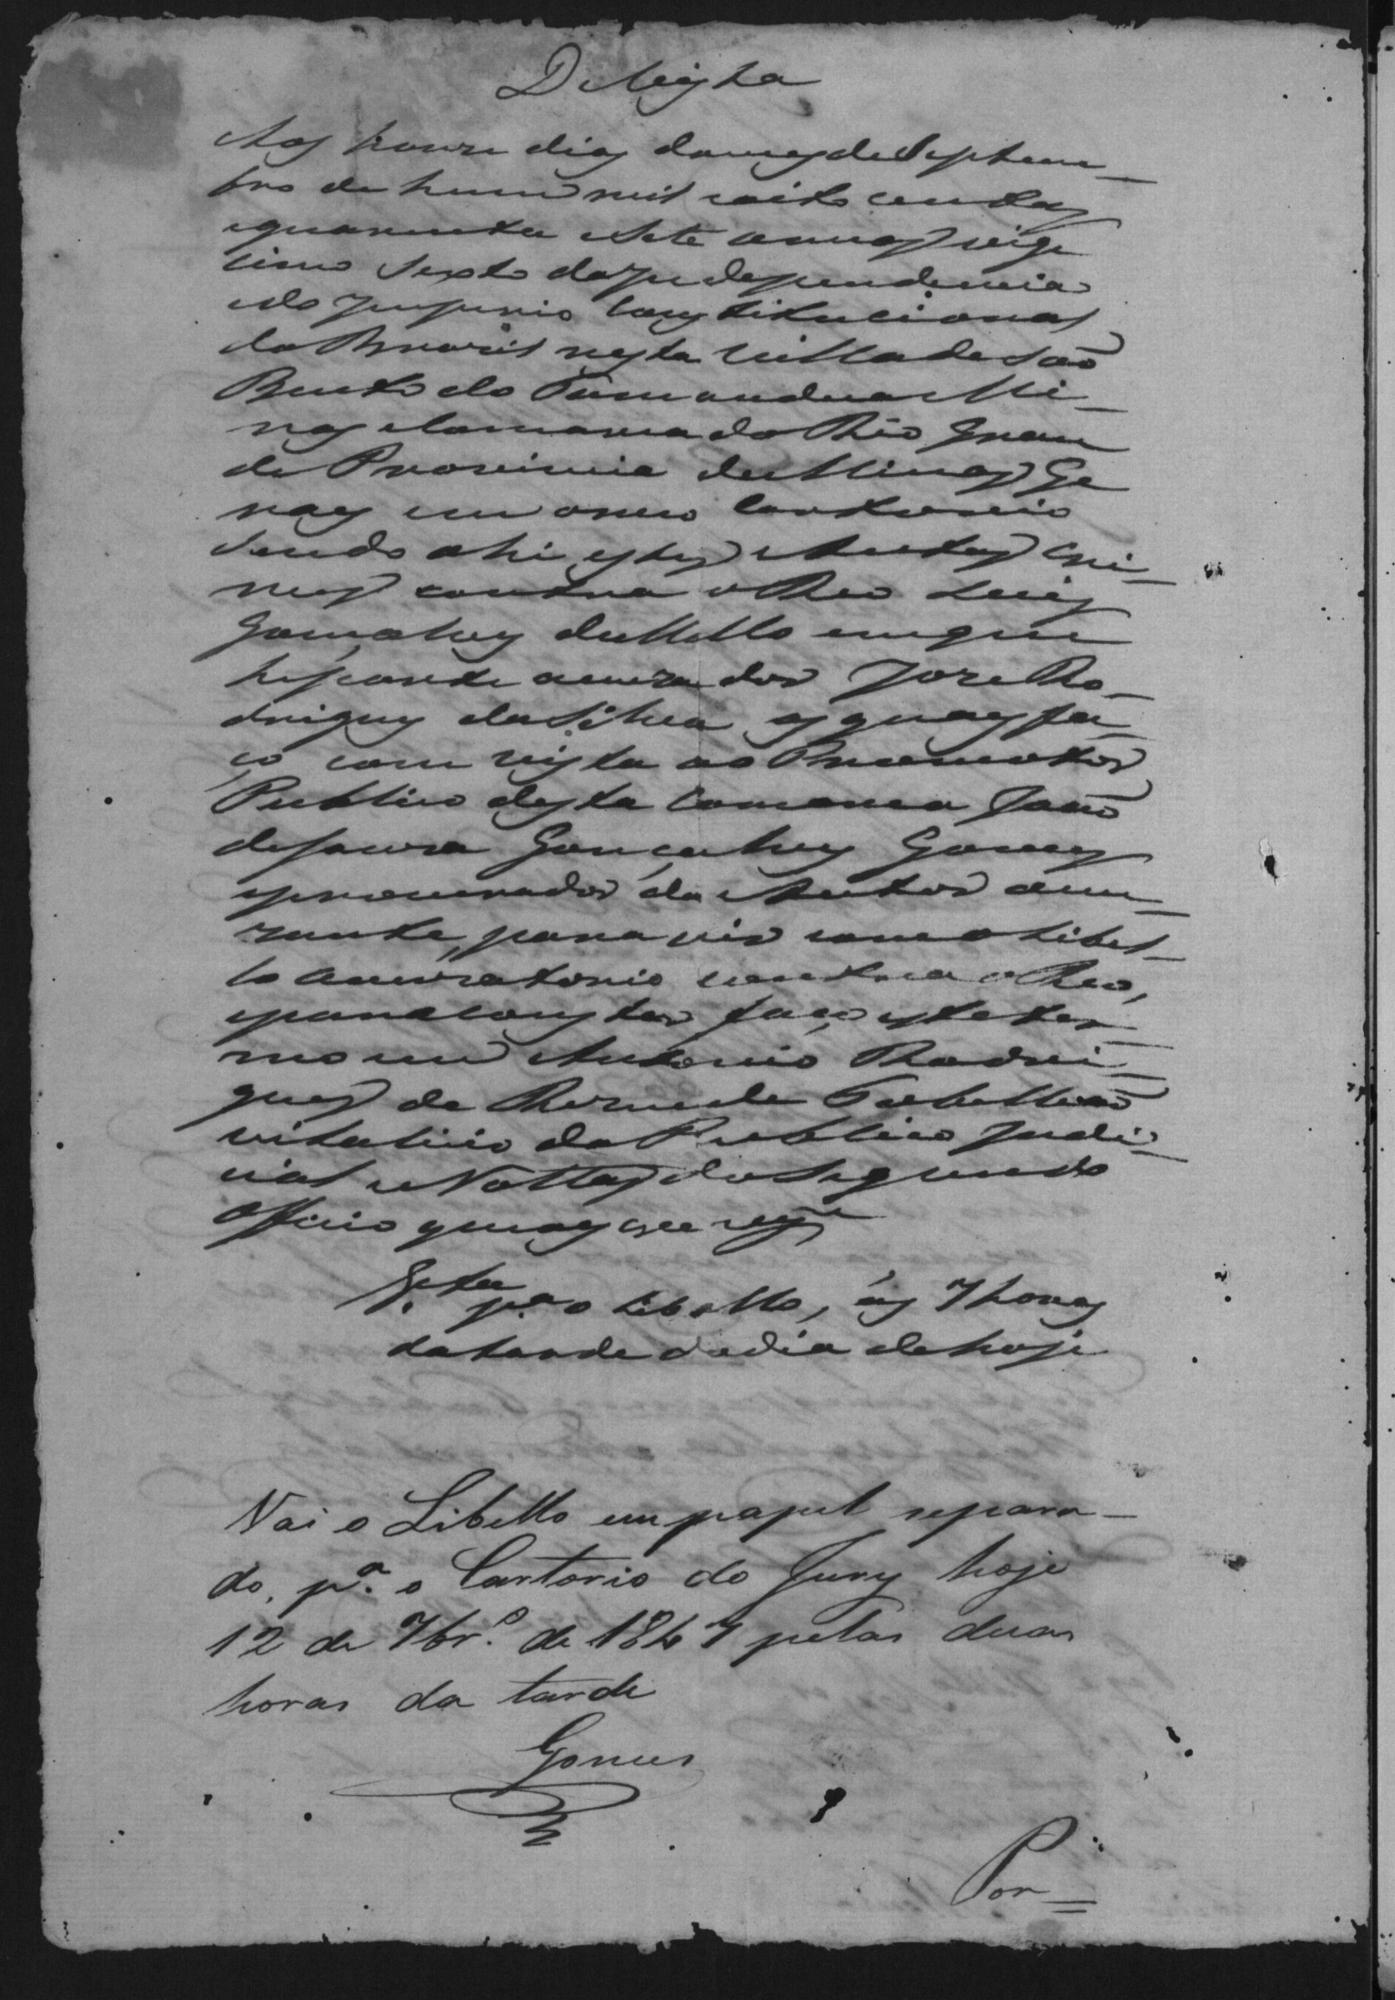 De Vista
Aos honze dias do mes de Septem-
bro de hum mil oito centos
equarenta esete annos vige
cimo Sexto da Independencia
edo Imperio Constitucional
do Brasil nesta Villa de São
Bento do Tamandua Mi-
nas e Comarca do Rio Gran
de Provincia de Minas Ge
raes em o meu Cartorio
Sendo ahi estes Autos Cri-
mes contra o Reo Luis
Gonçalves de Mello em que
he parte accuzador Joze Ro-
drigues da Silva os quaes fa
ço com vista ao Promotor
Publico desta Comarca João
de Souza Gonçalves Gomes
eprocurador do Autor accu-
zante, para vir com o Libel-
lo accuzatorio contra o Reo,
epara constar faço este ter-
mo eu Antonio Rodri-
gues de Rezende Tabellião
vitalicio do Publico Judi-
cial e Nottas do Segundo
Officio que as escrevy
Vta pa o Libello, ás 7 horas
da tarde do dia de hoje
Vai o Libello em papel separa-
do, pa. o Cartorio do Jury hoje
12 de 7br.o de 1847 pelas duas
horas da tarde
Gomes
Por=